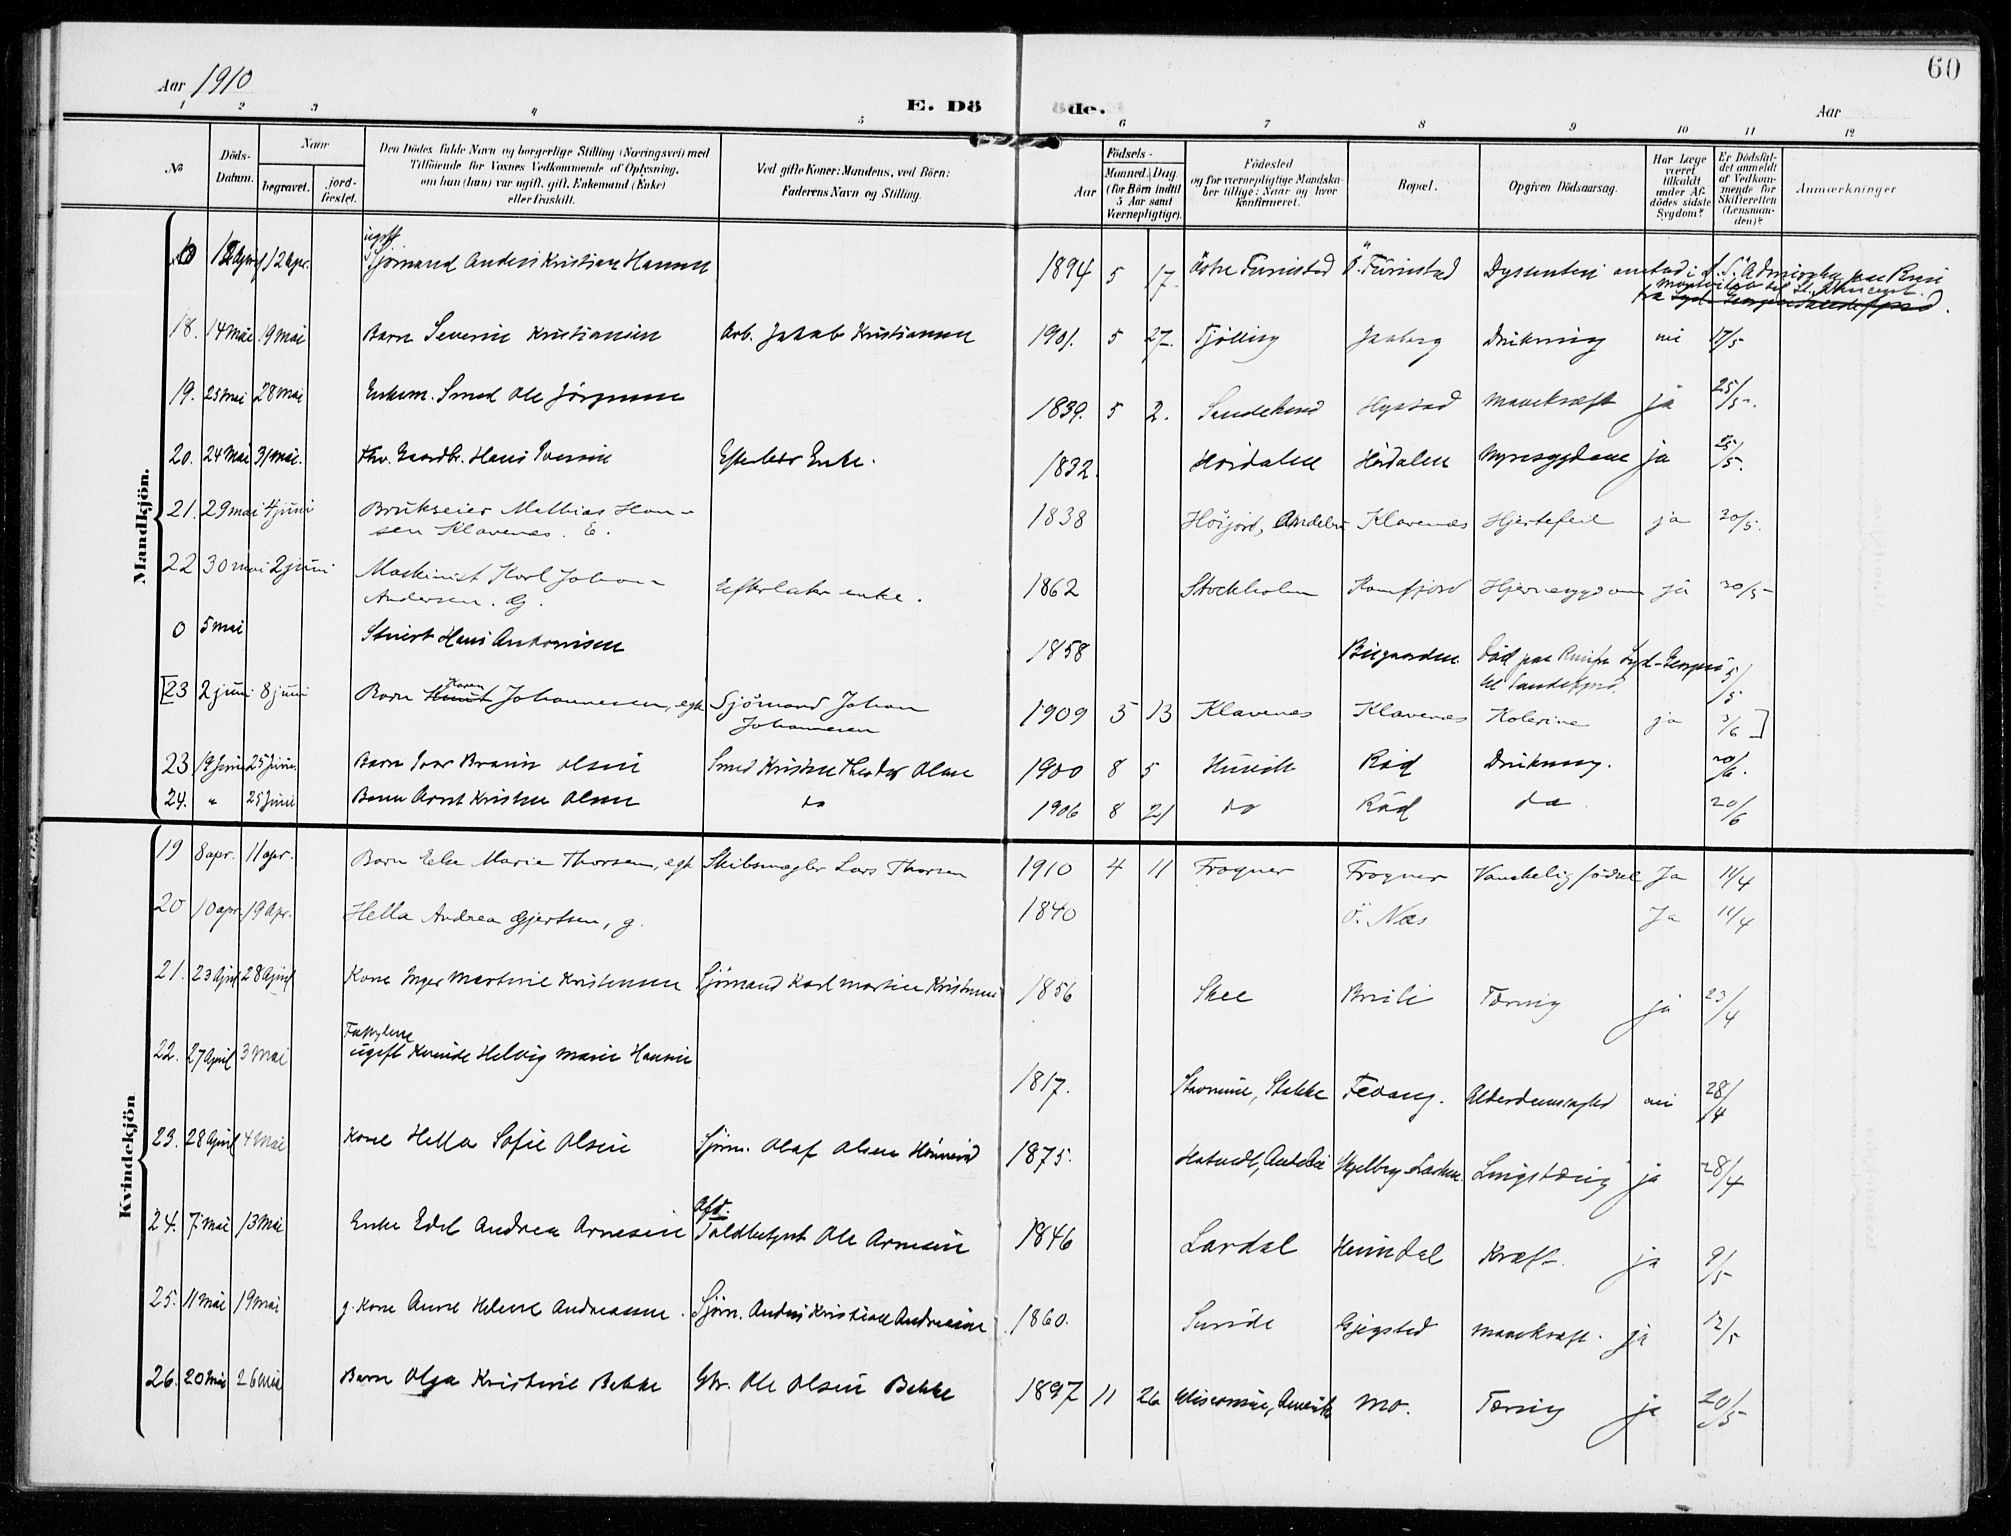 Aar 1910
E. Dö
öde.
Aar
60
1 2 3 4 5 6 7 8 9 10 11 12
No
Döds-Datum.
Naar
begravet.
jord-fæstet.
Den Dödes fulde Navn og borgerlige Stilling (Næringsvei) med
Tilföiende for Voxnes Vedkommende af Oplysning,
om han (hun) var ugift, gift, Enkemand (Enke)
eller fraskilt.
Ved gifte Koner: Mandens, ved Börn:
Faderens Navn og Stilling.
Aar
Födsels-
Maaned. Dag.
(for Börn indtil
5 Aar samt
Værnepligtige).
Födested
og for værnepligtige Mandska-
ber tillige: Naar og hvor
konfirmeret.
Bopæl.
Opgiven Dödsaarsag.
Har Læge
været
tilkaldt
under Af-
dödes sidste
Sygdom?
Er Dödsfal-
det anmeldt
af Vedkom-
mende for
Skifteretten
(Lensman-
den)?
Anmærkninger
Mandkjön.
ugift
12 apr. Sjømand Anders Kristian Hansen 1894 5 17. Østre Furustad Ö. Furustad Dysenteri
18. 14 Mai 19 mai Barn Severin Kristiansen Arb. Jakob Kristiansen 1901. 5 27. Tjølling Jaaberg Drukning nei 17/5
19. 25 mai 28 mai Enkem. Smed Ole Jörgensen 1839. 5 2. Sandeherred Hystad Mavekræft ja 25/5.
20. 24 Mai 31 mai. Fhv. Gaardbr. Hans Iversen Efterlader Enke. 1832. Hördalen Hördalen Nyresygdom ja 25/5.
21. 29 mai 4 juni Brukseier Mathias Han-
sen Klavenes. E. 1838 Höijord, Andebu Klavenes Hjertefeil ja 30/5.
22 30 mai 2 juni Maskinist Karl Johan
Andersen. G. Efterlater enke. 1862 Stockholm Kamfjord Hjernesygdom ja 30/5
0 5 mai Stuert Hans Antonisen 1858 Bugaarden Död paa Reise fra Syd-Georgia
til Sandefjord. 5/5
[23 2 juni 8 juni Barn Karen Johannesen, egte Sjömand Johan
Johannesen 1909 5 13 Klavenes Klavenes Kolerine ja 3/6 ]
23. 19 Juni 25 Juni. Barn Ivar Braun Olsen Smed Kristen Theodor Olsen 1900 8 5 Hunvik Råd Drukning. 20/6.
24. " 25 Juni Barn Arnt Kristen Olsen do 1906 8 21 do Råd do 20/6
Kvindekjön
19 8 apr. 11 apr. Barn Else Marie Thorsen, egte Skibsmægler Lars Thorsen 1910 4 11 Frogner Frogner Vanskelig födsel Ja 11/4
20 10 apr. 19 Apr. Hella Andrea Gjertsen, g. 1840 Ö. Næs Ja 11/4
21. 23 April 28 April Kone Inger Martine Kristensen Sjömand Karl Martin Kristensen 1856 Skee Bruli Tæring ja 23/4
22. 27 April 3 Mai ugift Kvinde Helvig Marie Hansen 1817. Stavnum, Stokke Fevang. Alderdomssvaghed nei 28/4
23. 28 April 4 Mai Kone Hella Sofie Olsen Sjöm. Olaf Olsen 1875. Hotvedt, Andebu Lungetæring ja 28/4
24. 7. mai 13 Mai Enke Edel Andrea Arnesen Afd. Toldbetjent Ole Arnesen 1846 Lardal Heimdal Kræft. ja 9/5
25. 11 mai 19 mai g. Kone Anne Helene Andreassen Sjöm. Anders Kristian Andreassen 1860. Sunde Gjegstad Mavekræft. ja 12/5
26. 20 Mai 26 mai Barn Olga Kristine Bekke Gbr. Ole Olsen Bekke 1897 11 26 Wisconsin, Amerika Mo. Tæring ja 20/5